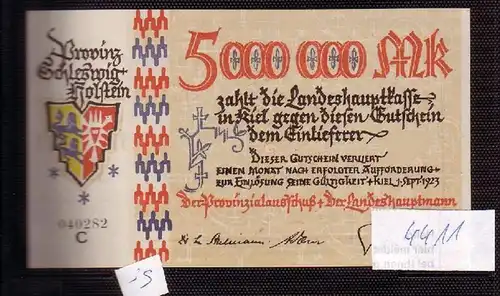 Provinz
Schleswig-
Holstein
040282
C
5000000 Mk
zahlt die Landeshauptkasse
in Kiel gegen diesen Gutschein
dem Einlieferer
DIESER GUTSCHEIN VERLIERT
EINEN MONAT NACH ERFOLGTER AUFFORDERUNG
ZUR EINLÖSUNG SEINE GÜLTIGKEIT + KIEL 1. SEPT. 1923
Der Provinzialausschuß + Der Landeshauptmann
4411